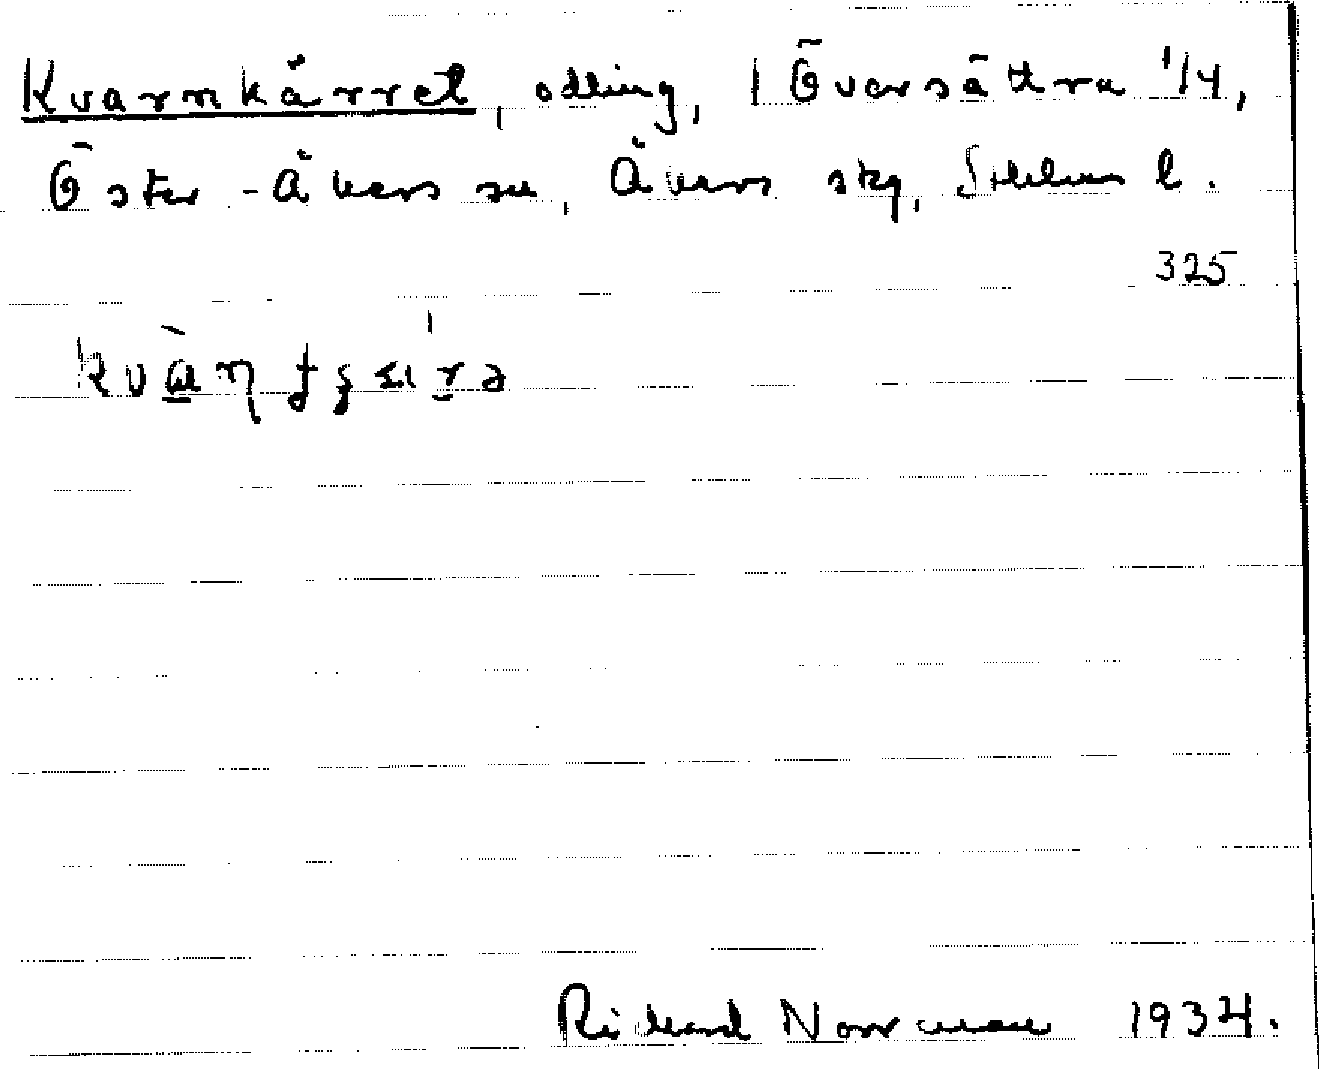 Kvarnkärret, odling, 1 Översättra 1/4,
Öster-Åkers sn, Åkers skg, Sthlms l.
325
Richard Norrman 1934.